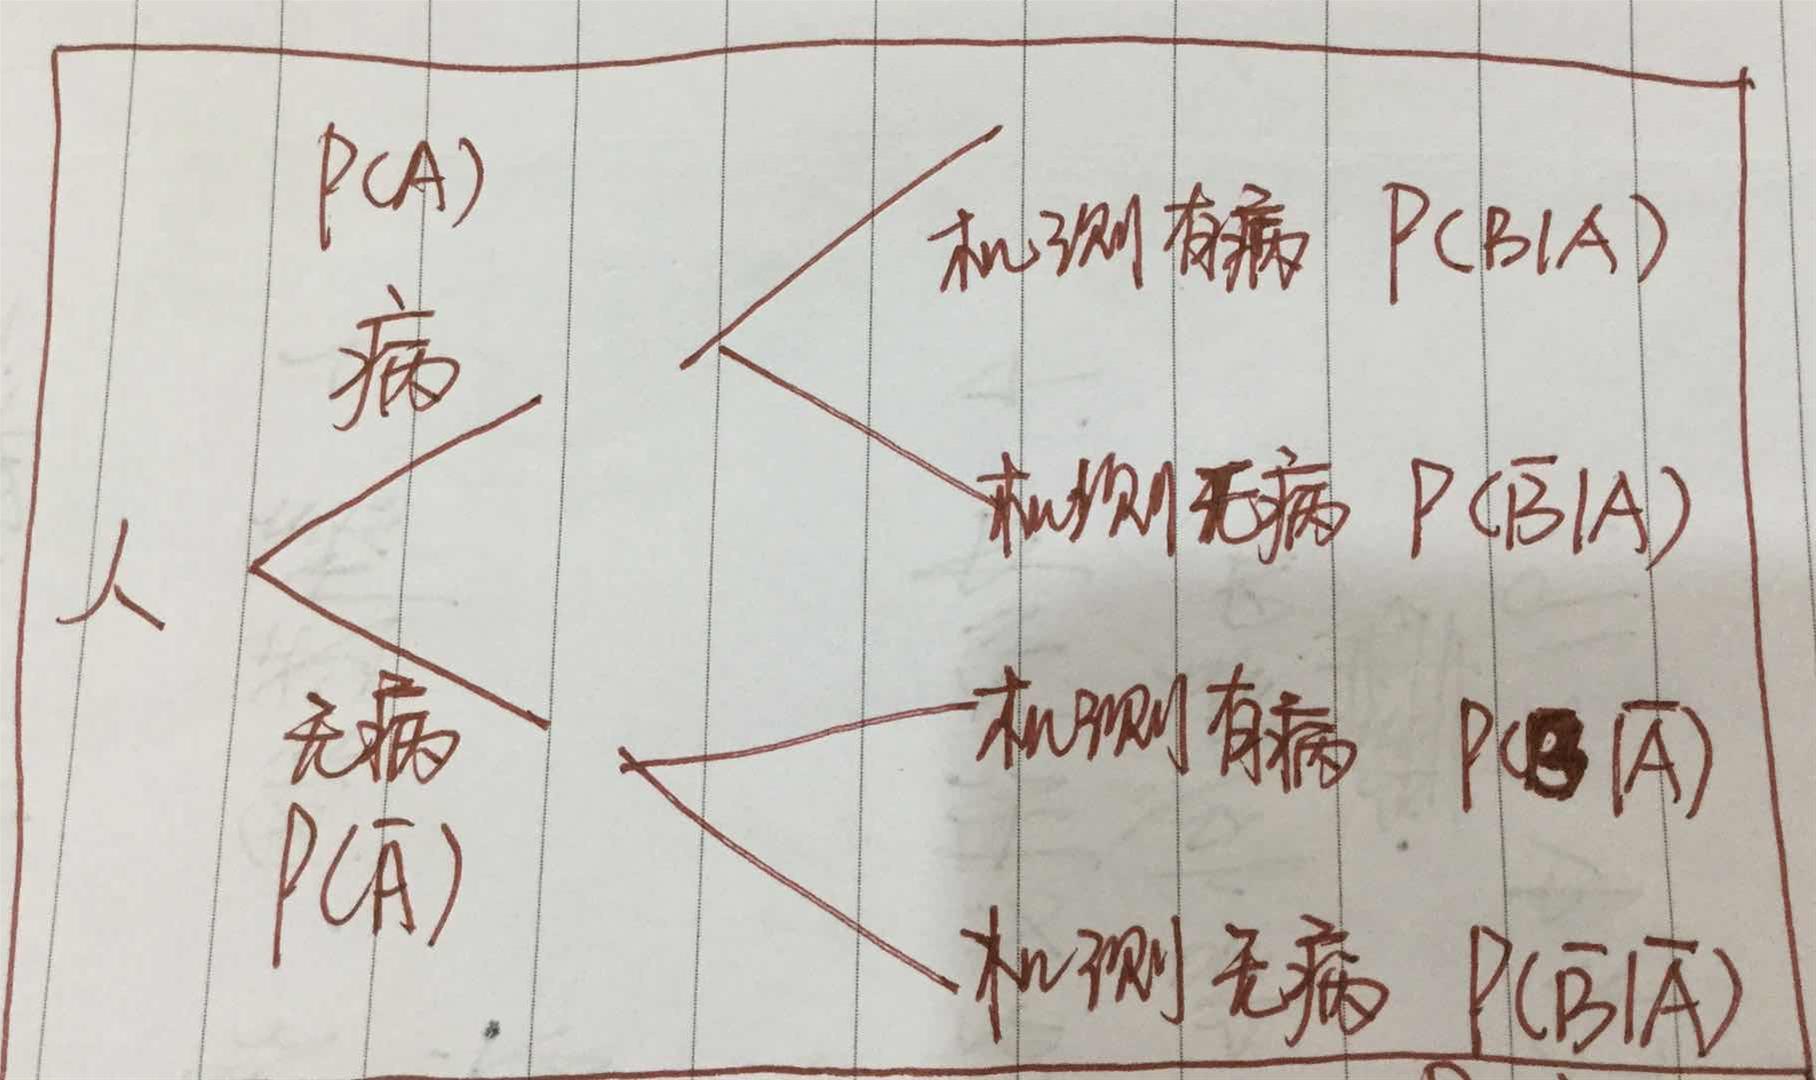 P(A)
机测有病 P(B|A)
病
机测无病 P(B̅|A)
人
无病
机测有病 P(B|A̅)
P(A̅)
机测无病 P(B̅|A̅)